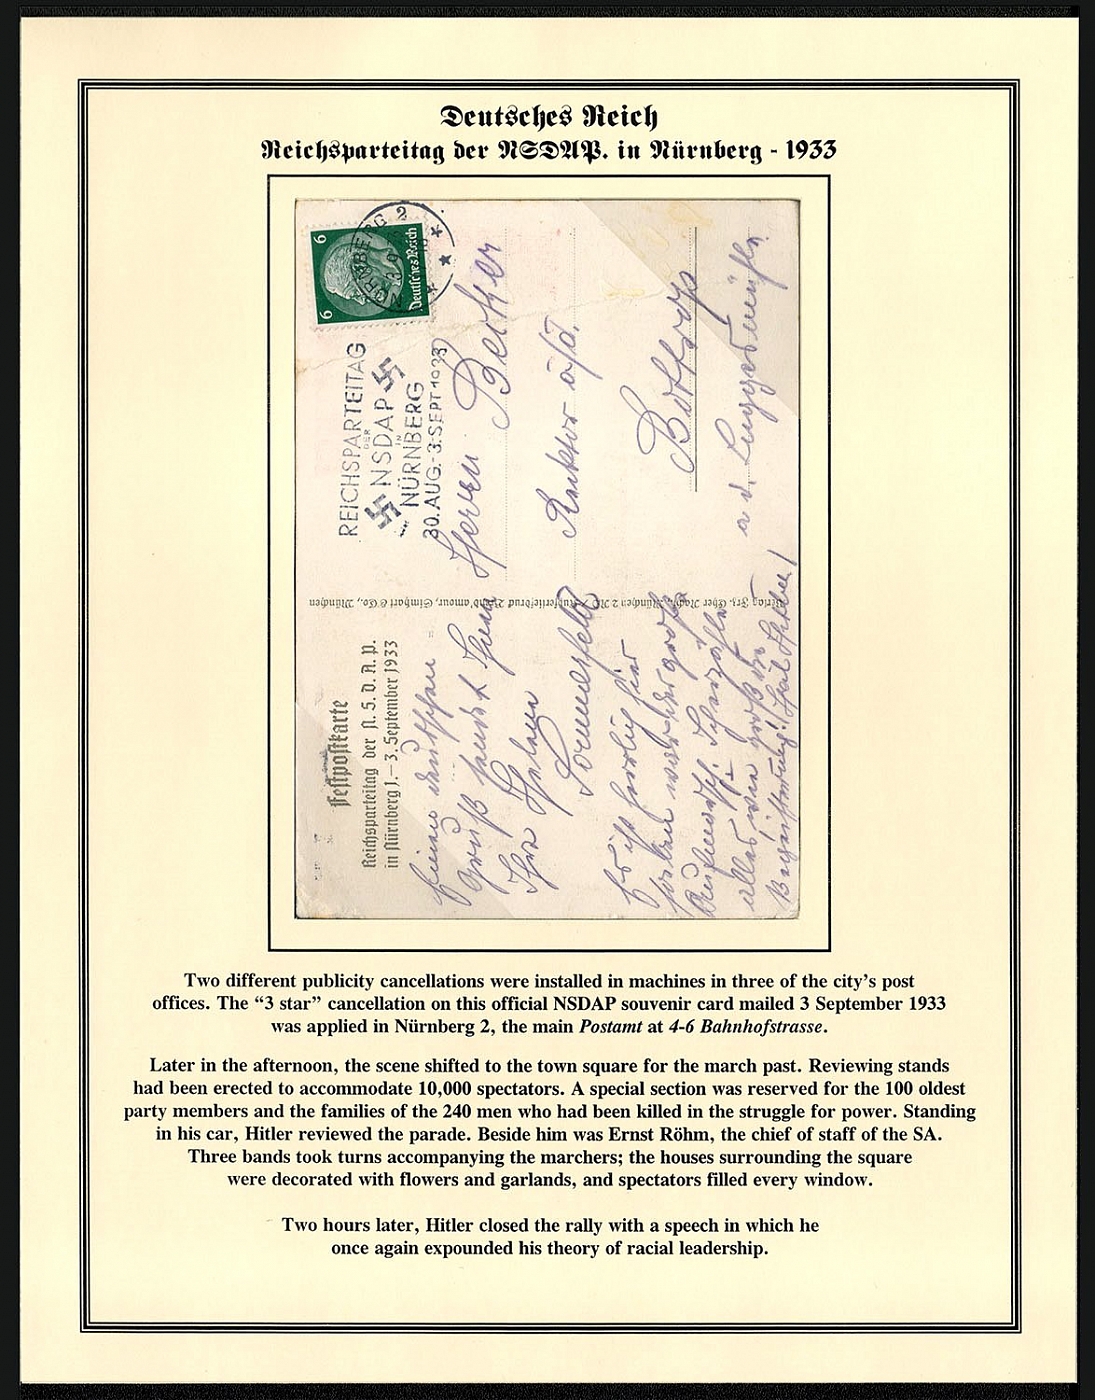 Deutsches Reich
Reichsparteitag der NSDAP. in Nürnberg - 1933
6
6
Deutsches Reich
NÜRNBERG 2
REICHSPARTEITAG
DER
NSDAP
IN
NÜRNBERG
30.AUG.-3.SEPT 1933
Herrn Becker
Rektor a/d.
Bottrop
a d.
Festpostkarte
Reichsparteitag der N. S. D. A. P.
in Nürnberg 1.– 3. September 1933
Einen deutschen
Gruß sendet Ihnen
Ihre Helene
Sommerfeld
Es ist herrlich hier
der große
alles
Begeisterung! Heil Hitler!
Two different publicity cancellations were installed in machines in three of the city’s post
offices. The “3 star” cancellation on this official NSDAP souvenir card mailed 3 September 1933
was applied in Nürnberg 2, the main Postamt at 4-6 Bahnhofstrasse.
Later in the afternoon, the scene shifted to the town square for the march past. Reviewing stands
had been erected to accommodate 10,000 spectators. A special section was reserved for the 100 oldest
party members and the families of the 240 men who had been killed in the struggle for power. Standing
in his car, Hitler reviewed the parade. Beside him was Ernst Röhm, the chief of staff of the SA.
Three bands took turns accompanying the marchers; the houses surrounding the square
were decorated with flowers and garlands, and spectators filled every window.
Two hours later, Hitler closed the rally with a speech in which he
once again expounded his theory of racial leadership.